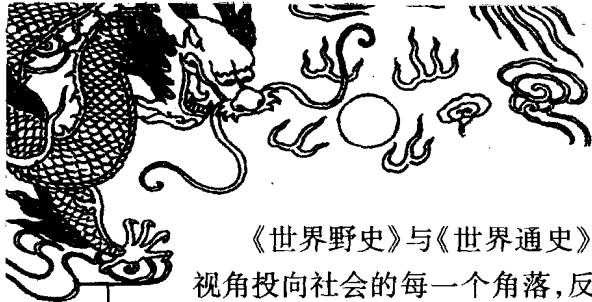 《世界野史》与《世界通史》
视角投向社会的每一个角落,反